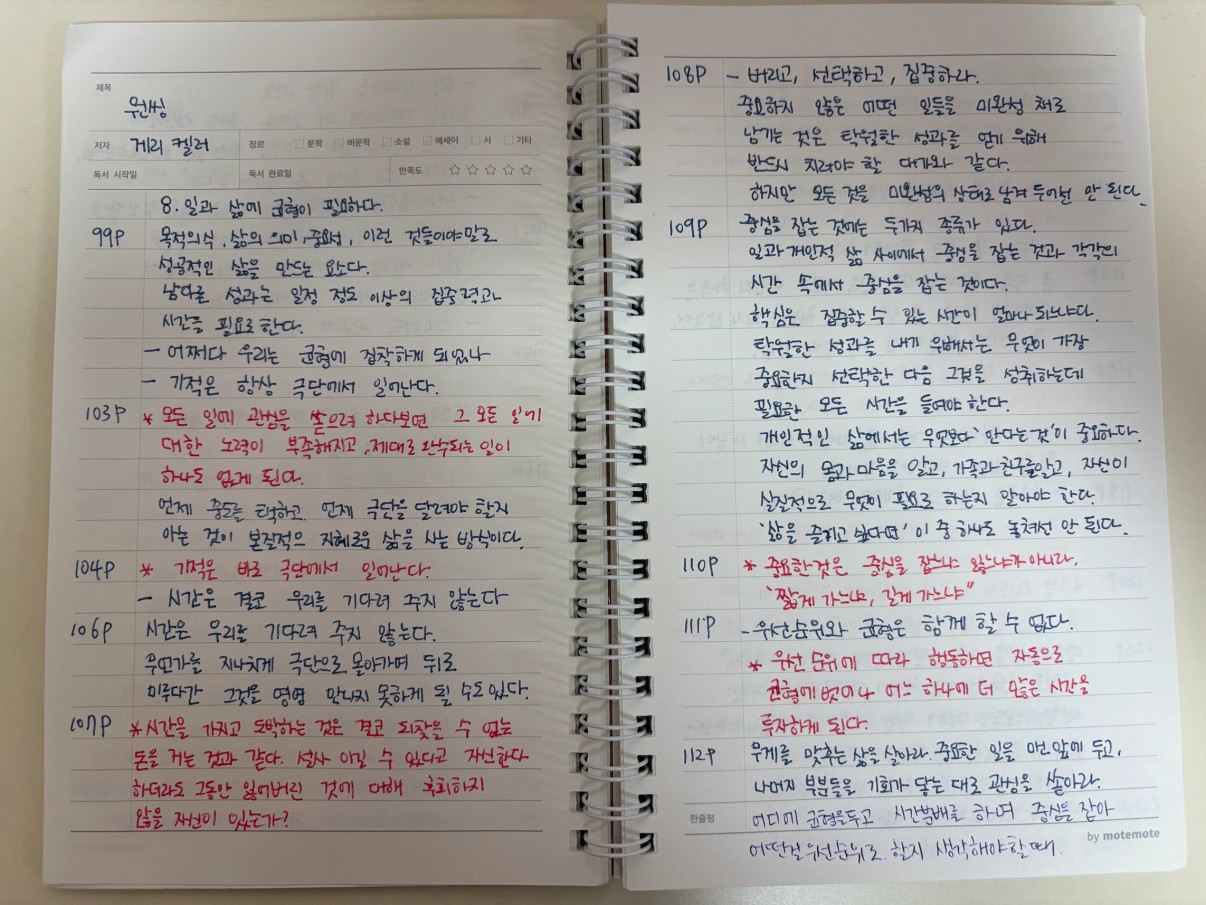 제목
원씽
저자 게리 켈러 장르 문학 비문학 소설 에세이 시 기타
독서 시작일 독서 완료일 만족도
8. 일과 삶에 균형이 필요하다.
99P 목적의식, 삶의 의미, 중요성, 이런 것들이야말로
성공적인 삶을 만드는 요소다.
남다를 성과는 일정 정도 이상의 집중력과
시간을 필요로 한다.
- 어쩌다 우리는 균형에 집착하게 되었나
- 기적은 항상 극단에서 일어난다.
103P * 모든 일에 관심을 쏟으려 하다보면 그 모든 일에
대한 노력이 부족해지고, 제대로 완수되는 일이
하나도 없게 된다.
언제 중도를 택하고 언제 극단을 달려야 할지
아는 것이 본질적으 지혜로운 삶을 사는 방식이다.
104P * 기적은 바로 극단에서 일어난다.
- 시간은 결코 우리를 기다려 주지 않는다
106P 시간은 우리를 기다려 주지 않는다.
무언가를 지나치게 극단으로 몰아가며 뒤로
미루다간 그것을 영영 만나지 못하게 될 수도 있다.
107P * 시간을 가지고 도박하는 것은 결코 되찾을 수 없는
돈을 거는 것과 같다. 설사 이길 수 있다고 자신한다
하더라도 그동안 잃어버린 것에 대해 후회하지
않을 자신이 있는가?
108P - 버리고, 선택하고, 집중하라.
중요하지 않은 어떤 일들을 미완성 채로
남기는 것은 탁월한 성과를 얻기 위해
반드시 치러야 할 대가와 같다.
하지만 모든 것을 미완성의 상태로 남겨 두어선 안 된다.
109P 중심을 잡는 것에는 두가지 종류가 있다.
일과 개인적 삶 사이에서 중심을 잡는 것과 각각의
시간 속에서 중심을 잡는 것이다.
핵심은 집중할 수 있는 시간이 얼마나 되느냐다.
탁월한 성과를 내기 위해서는 무엇이 가장
중요한지 선택한 다음 그것을 성취하는데
필요한 모든 시간을 들여야 한다.
개인적인 삶에서는 무엇보다 '안다는 것'이 중요하다.
자신의 몸과 마음을 알고, 가족과 친구를 알고, 자신이
실질적으로 무엇이 필요로 하는지 알아야 한다.
'삶을 즐기고 싶다면' 이 중 하나도 놓쳐선 안 된다.
110P * 중요한 것은 중심을 잡느냐 잃느냐가 아니라.
"짧게 가느냐, 길게 가느냐"
111P - 우선순위와 균형은 함께 할 수 없다.
* 우선 순위에 따라 행동하면 자동으로
균형에 벗어나 어느 하나에 더 많은 시간을
투자하게 된다.
112P 무게를 맞추는 삶을 살아라. 중요한 일을 맨 앞에 두고,
나머지 부분들을 기회가 닿는 대로 관심을 쏟아라.
한줄평 어디에 균형을 두고 시간분배를 하며 중심을 잡아
어떤걸 우선순위로 할지 생각해야할 때.
by motemote